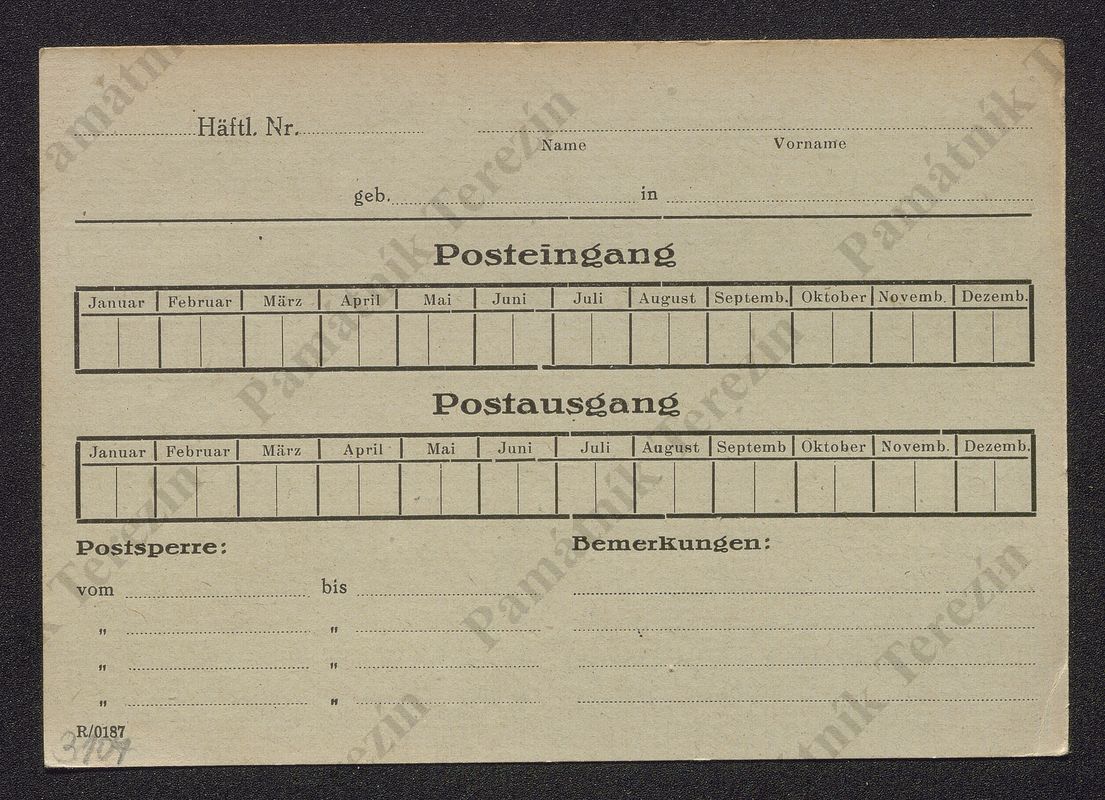 Häftl. Nr.
Name Vorname
geb. in
Posteingang
Januar Februar März April Mai Juni Juli August Septemb. Oktober Novemb. Dezemb.
Postausgang
Januar Februar März April Mai Juni Juli August Septemb Oktober Novemb. Dezemb.
Postsperre: Bemerkungen:
vom bis
" "
" "
" "
R/0187
Památník Terezín
Památník Terezín
Památník Terezín
Památník Terezín